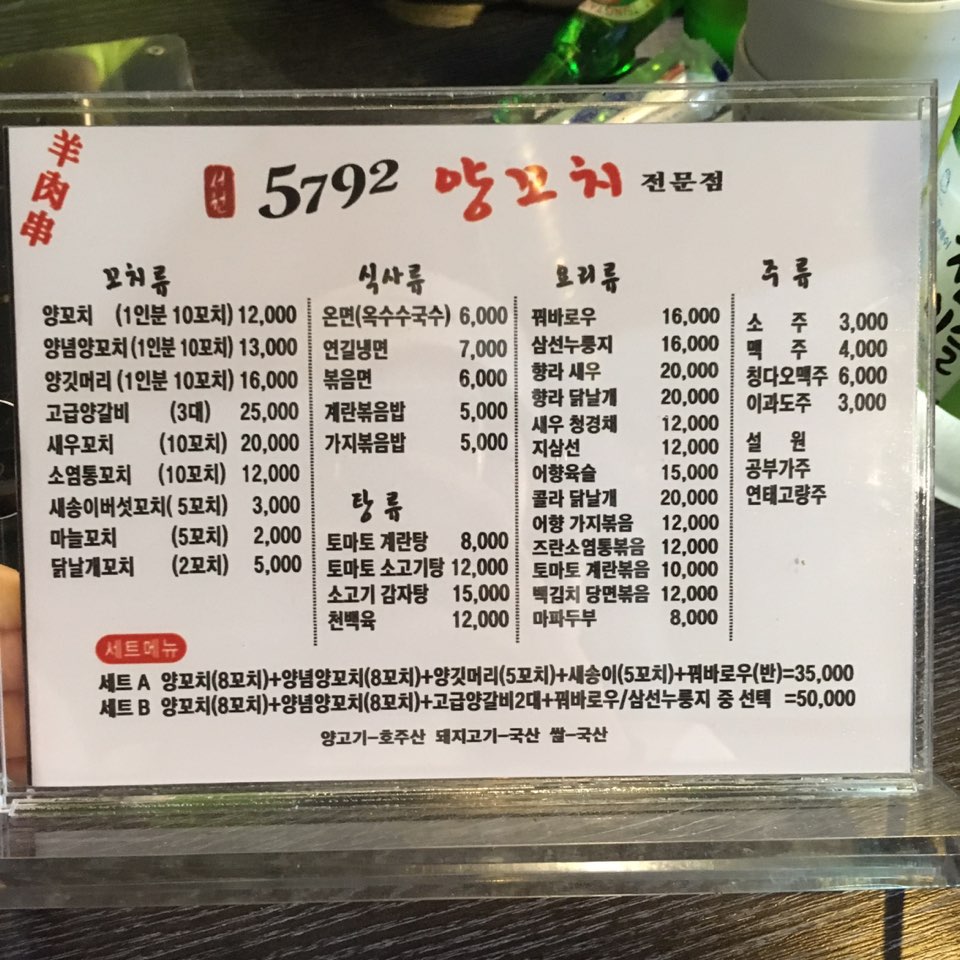 羊肉串
서천 5792 양꼬치 전문점
꼬치류
양꼬치 (1인분 10꼬치) 12,000
양념양꼬치(1인분 10꼬치) 13,000
양깃머리 (1인분 10꼬치) 16,000
고급양갈비 (3대) 25,000
새우꼬치 (10꼬치) 20,000
소염통꼬치 (10꼬치) 12,000
새송이버섯꼬치( 5꼬치) 3,000
마늘꼬치 (5꼬치) 2,000
닭날개꼬치 (2꼬치) 5,000
식사류
온면(옥수수국수) 6,000
연길냉면 7,000
볶음면 6,000
계란볶음밥 5,000
가지볶음밥 5,000
탕류
토마토 계란탕 8,000
토마토 소고기탕 12,000
소고기 감자탕 15,000
천백육 12,000
요리류
꿔바로우 16,000
삼선누룽지 16,000
향라 새우 20,000
향라 닭날개 20,000
새우 청경채 12,000
지삼선 12,000
어향육슬 15,000
콜라 닭날개 20,000
어향 가지볶음 12,000
즈란소염통볶음 12,000
토마토 계란볶음 10,000
백김치 당면볶음 12,000
마파두부 8,000
주류
소 주 3,000
맥 주 4,000
칭다오맥주 6,000
이과도주 3,000
설 원
공부가주
연태고량주
세트메뉴
세트 A 양꼬치(8꼬치)+양념양꼬치(8꼬치)+양깃머리(5꼬치)+새송이(5꼬치)+꿔바로우(반)=35,000
세트 B 양꼬치(8꼬치)+양념양꼬치(8꼬치)+고급양갈비2대+꿔바로우/삼선누룽지 중 선택 =50,000
양고기-호주산 돼지고기-국산 쌀-국산